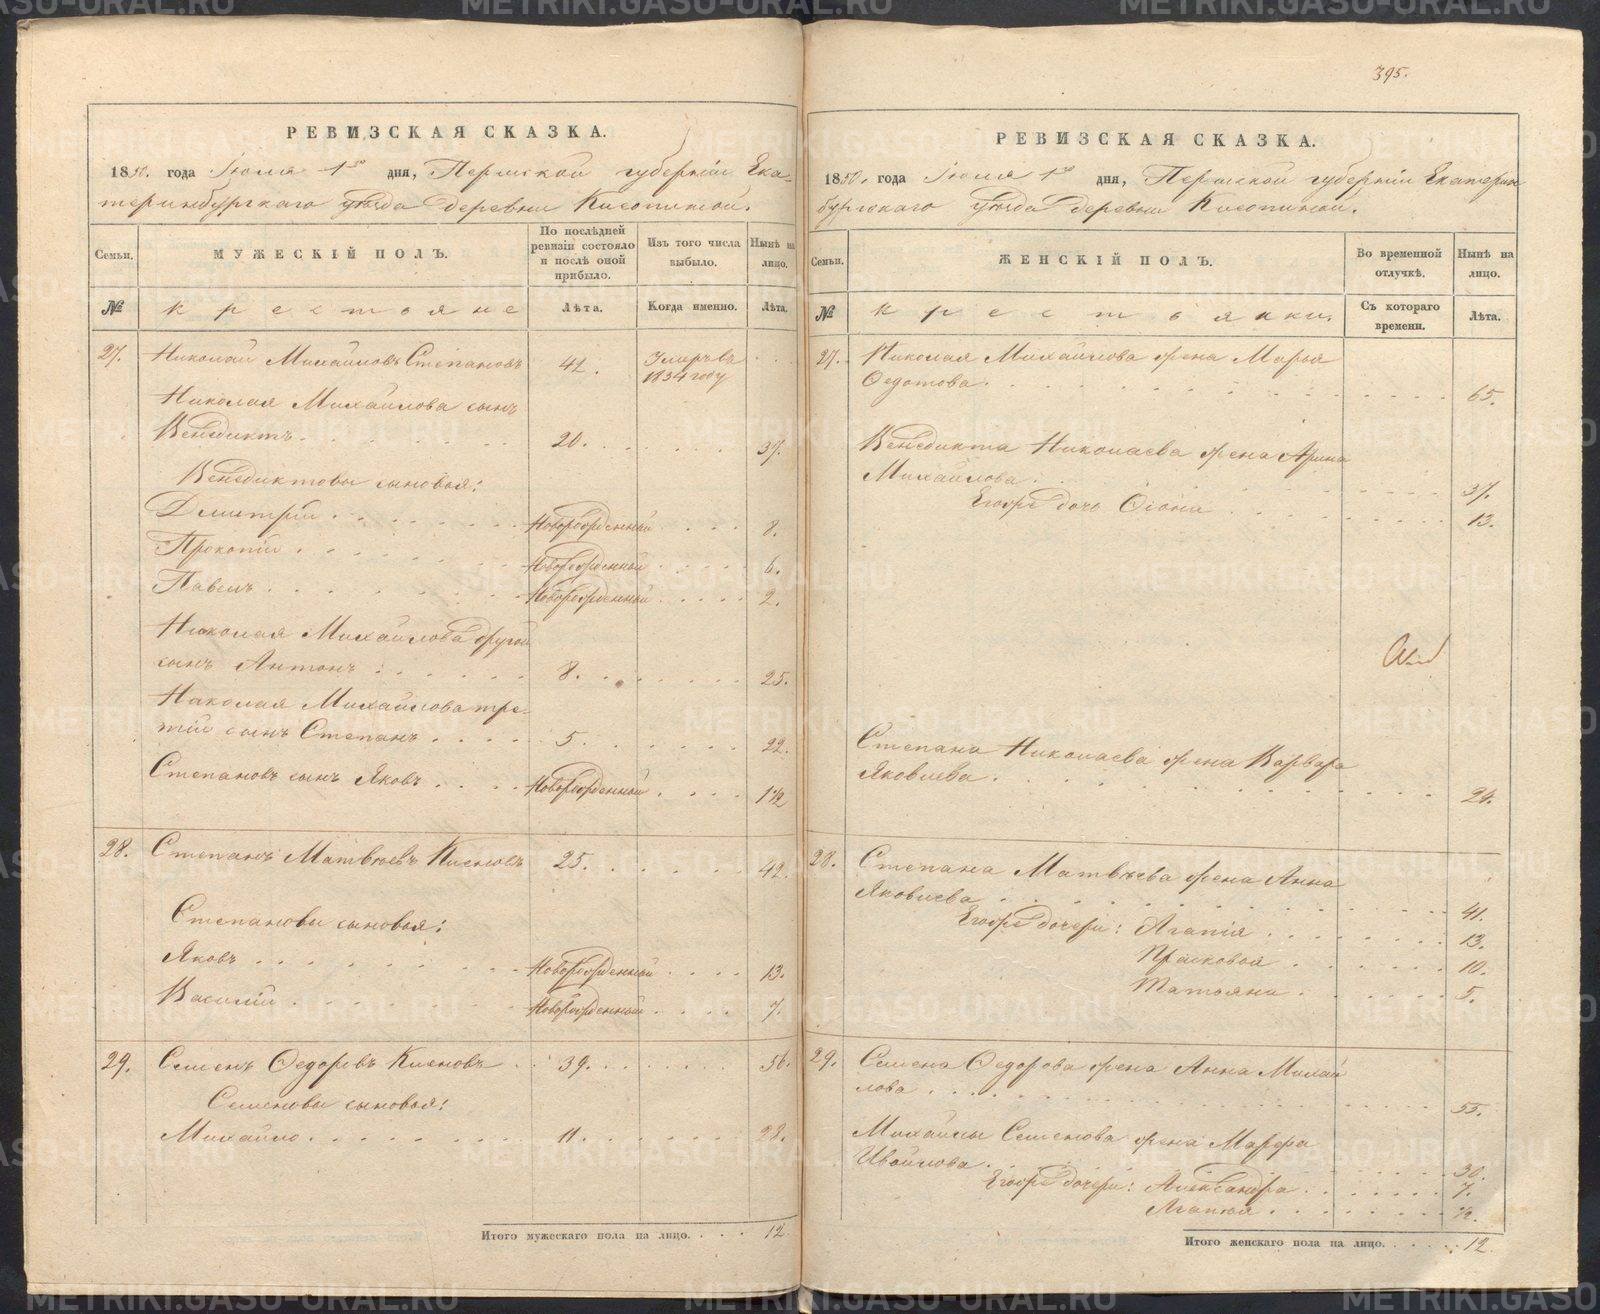 395.
РЕВИЗСКАЯ СКАЗКА.
1850. года Іюля 1го дня, Пермской губерніи Ека-
теринбургскаго уѣзда деревни
Семьи. МУЖЕСКІЙ ПОЛЪ. По послѣдней ревизіи состояло и послѣ оной прибыло. Изъ того числа выбыло. Нынѣ на лицо.
№ крестьяне Лѣта. Когда именно. Лѣта.
27. Николай Михайловъ Степановъ 41. Умеръ въ 1834 году
Николая Михайлова сынъ
Венедиктъ 20. 37.
Венедиктовы сыновья:
Дмитрій Новорожденный 8.
Прокопій Новорожденный 6.
Павелъ Новорожденный 2.
Николая Михайлова другой
сынъ Антонъ 8. 25.
Николая Михайлова тре-
тій сынъ Степанъ 5. 22.
Степановъ сынъ Яковъ Новорожденный 1 1/2
28. Степанъ Матвѣевъ 25. 42.
Степановы сыновья:
Яковъ Новорожденный 13.
Василій Новорожденный 7.
29. Семенъ Ѳедоровъ 39. 56.
Семеновы сыновья:
Михайло 11. 28.
Итого мужескаго пола на лицо. 12
РЕВИЗСКАЯ СКАЗКА.
1850. года Іюля 1го дня, Пермской губерніи Екатерин
бургскаго уѣзда деревни
Семьи. ЖЕНСКІЙ ПОЛЪ. Во временной отлучкѣ. Нынѣ на лицо.
№ крестьянки. Съ котораго времени. Лѣта.
27. Николая Михайлова жена Марья
Ѳедотова 65.
Венедикта Николаева жена Арина
Михайлова 37.
Егожъ дочь 13.
Степана Николаева жена Варвара
Яковлева 24.
28. Степана Матвѣева жена Анна
Яковлева 41.
Егожъ дочери: Агапія 13.
Прасковья 10.
Татьяна 5.
29. Семена Ѳедорова жена Анна Михай
лова 55.
Михайлы Семенова жена Марфа
30.
Егожъ дочери: Александра 7.
Агапія 1/2.
Итого женскаго пола на лицо. 12
METRIKI.GASO-URAL.RU